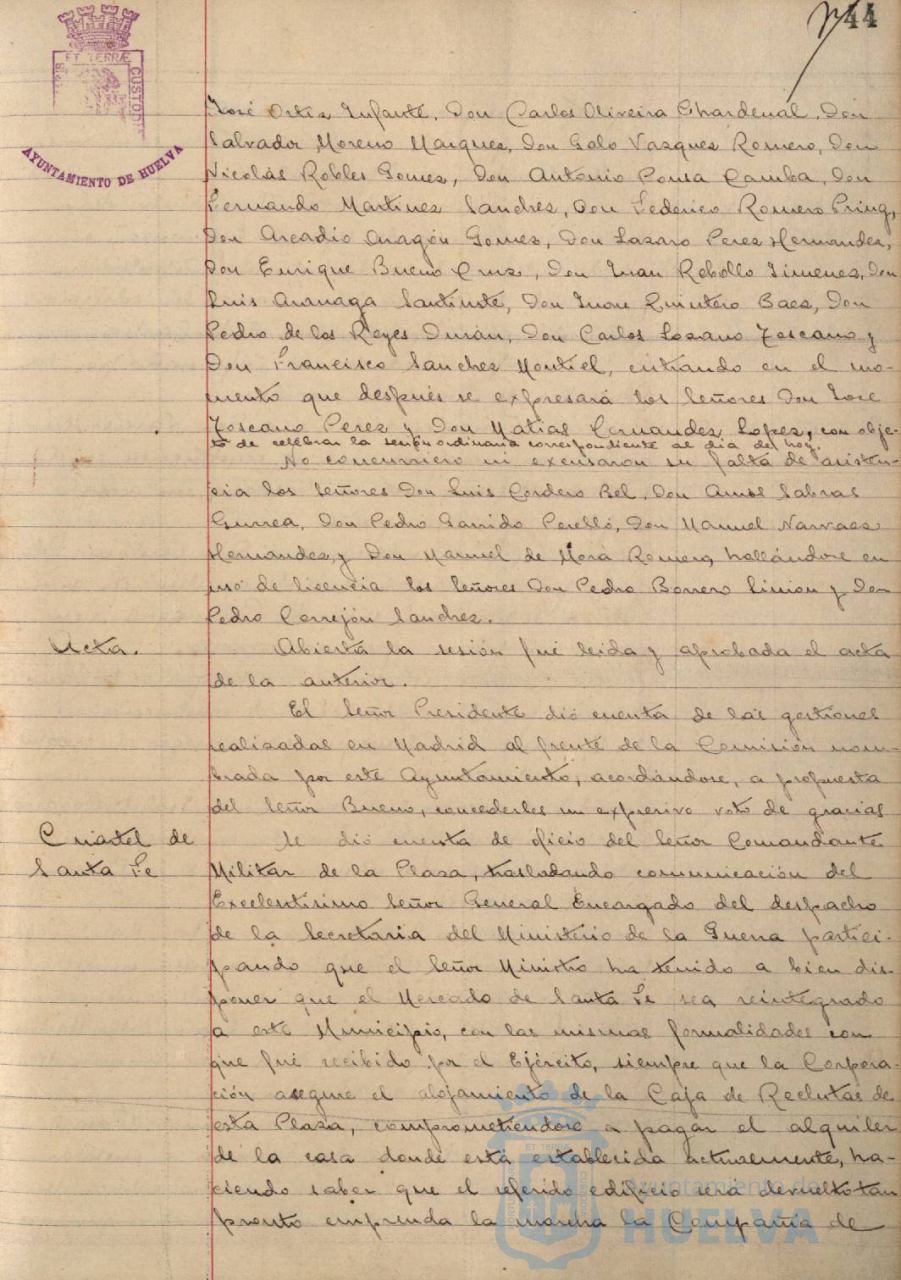 44
ET TERRÆ
CUSTODIA
AYUNTAMIENTO DE HUELVA
José Ortiz Infante, Don Carlos Oliveira Chardenal, Don
Salvador Moreno Marques, Don Galo Vasques Romero, Don
Nicolás Robles Gomes, Don Antonio Ponsa Camba, Don
Fernando Martines Sanches, Don Federico Romero Pring,
Don Arcadio Aragón Gomes, Don Lazaro Peres Hernandes,
Don Enrique Bueno Crus, Don Juan Rebollo Jimenes, Don
Luis Aranaga Don Quintero Baes, Don
Pedro de los Reyes Durán, Don Carlos Lozano Toscano y
Don Francisco Sanches Montiel, entrando en el mo-
mento que después se expresará los Señores Don José
Toscano Peres y Don Matias Fernandes Lopes, con obje-
to de celebrar la sesión ordinaria correspondiente al dia de hoy.
No concurriero ni excusaron su falta de asisten-
cia los Señores Don Luis Cordero Bel, Don Amós Sabras
Gurrea, Don Pedro Garrido Perelló, Don Manuel Narvaes
Hernandes, y Don Manuel de Mora Romero, hallándose en
uso de licencia los Señores Don Pedro Borrero Limon y Don
Pedro Cerrejón Sanches.
Acta.
Abierta la sesión fué leida y aprobada el acta
de la anterior.
El Señor Presidente dió cuenta de las gestiones
realizadas en Madrid al frente de la Comisión nom-
brada por este Ayuntamiento, acordándose, a propuesta
del Señor Bueno, concederles un expresivo voto de gracias
Cuartel de
Santa Fe
Se dió cuenta de oficio del Señor Comandante
Militar de la Plaza, trasladando comunicación del
Excelentisimo Señor General Encargado del despacho
de la Secretaria del Ministerio de la Guerra partici-
pando que el Señor Ministro ha tenido a bien dis-
poner que el Mercado de Santa Fe sea reintegrado
a este Municipio, con las mismas formalidades con
que fué recibido por el Ejército, siempre que la Corpora-
ción asegure el alojamiento de la Caja de Reclutas de
esta Plaza, comprometiendose a pagar el alquiler
de la casa donde está establecida actualmente, ha-
ciendo saber que el referido edificio será devuelto tan
pronto emprenda la marcha la Compañia de
Ayuntamiento de
HUELVA